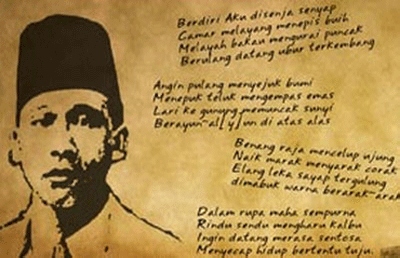 Berdiri Aku disenja senyap
Camar melayang menepis buih
Melayah bakau mengurai puncak
Berulang datang ubur terkembang
Angin pulang menyejuk bumi
Menepuk teluk mengempas emas
Lari ke gunung memuncak sunyi
Berayun-al[y]un di atas alas
Benang raja mencelup ujung
Naik marak menyarak corak
Elang leka sayap tergulung
dimabuk warna berarak-arak
Dalam rupa maha sempurna
Rindu sendu mengharu kalbu
Ingin datang merasa sentosa
Menyecap hidup bertentu tuju.